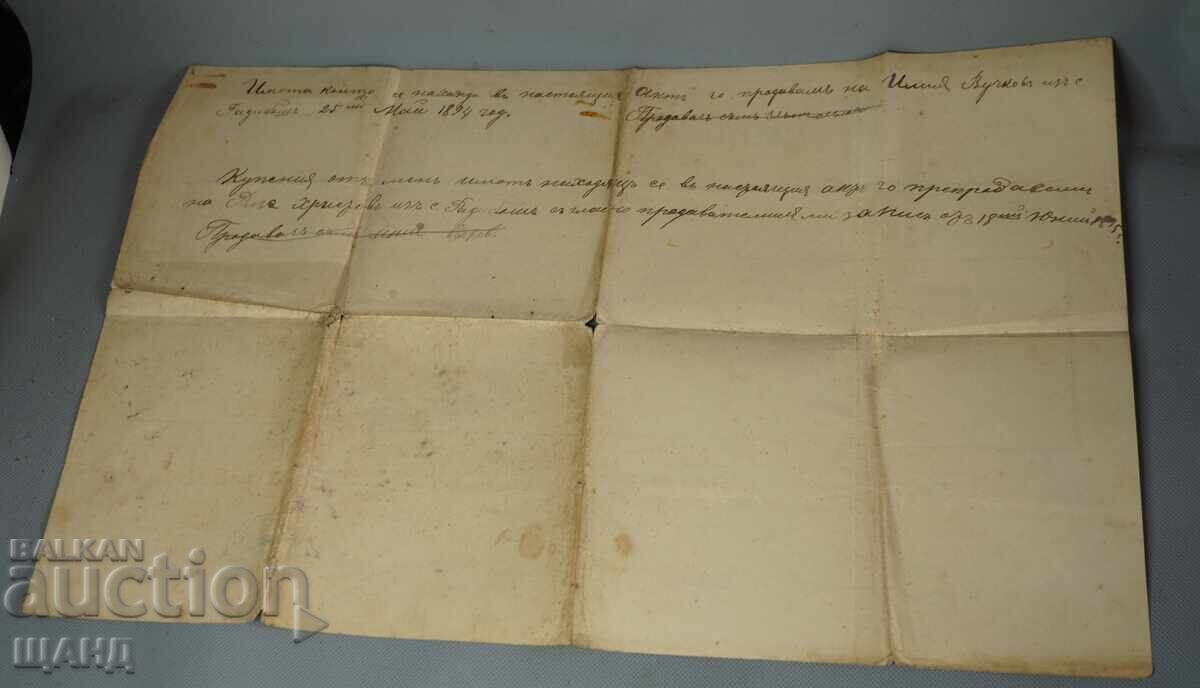 Имота който се нахожда въ настоящия Актъ го продавамъ на Илия Вучковъ изъ с
25 ий Май 1894 год. Продавачъ съмъ
Купения отъ мень имотъ находящъ се въ настоящия актъ го препродавамъ
на Христовъ изъ с съгласно продавателния ми записъ отъ 15 ий Юний
Продавачъ съмъ
BALKAN
auction
ШАНД